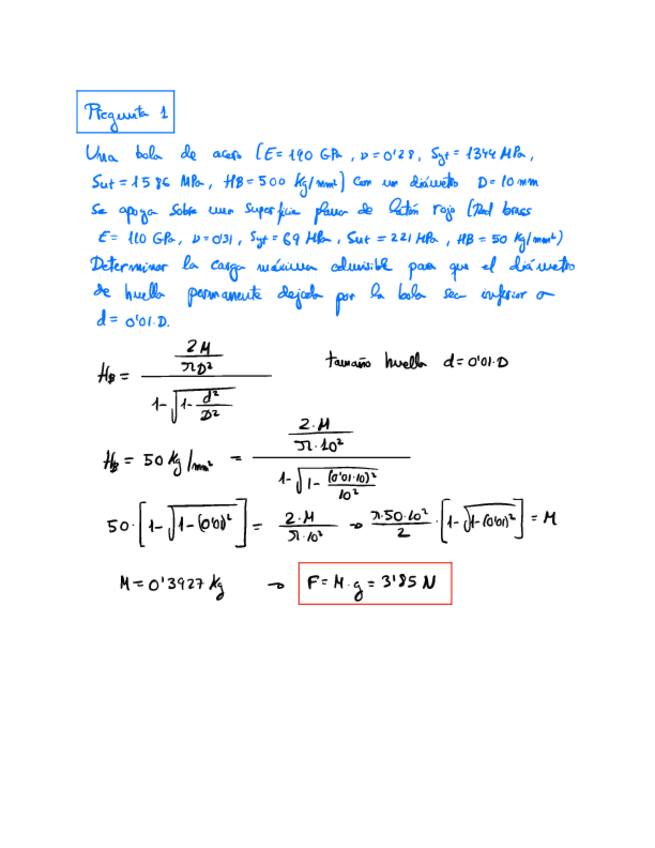 Pregunta 1
Una bola de acero (E=190 GPa, ν=0'28, Syt=1344 MPa,
Sut=1586 MPa, HB=500 kg/mm²) con un diámetro D=10 mm
se apoya sobre una superficie plana de latón rojo (Red brass
E=110 GPa, ν=0'31, Syt=69 MPa, Sut=221 MPa, HB=50 kg/mm²)
Determinar la carga máxima admisible para que el diámetro
de huella permanente dejada por la bola sea inferior a
d=0'01·D.
H_B = (2M/πD²)/(1-√(1-d²/D²)) tamaño huella d=0'01·D
H_B = 50 kg/mm² = (2·M/π·10²)/(1-√(1-(0'01·10)²/10²))
50·[1-√(1-(0'01)²)] = 2·M/π·10² → π·50·10²/2·[1-√(1-(0'01)²)] = M
M=0'3927 kg → F=M·g=3'85 N